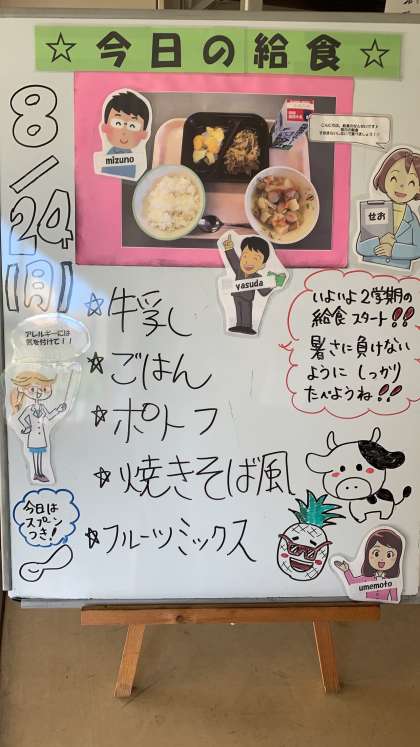 ☆今日の給食☆
8/24(月)
mizuno
せお
yasuda
いよいよ2学期の
給食スタート!!
暑さに負けない
ように しっかり
たべようね!!
アレルギーには
気を付けて!!
☆牛乳
☆ごはん
☆ポトフ
☆焼きそば風
☆フルーツミックス
今日は
スプーン
つき!
umemoto